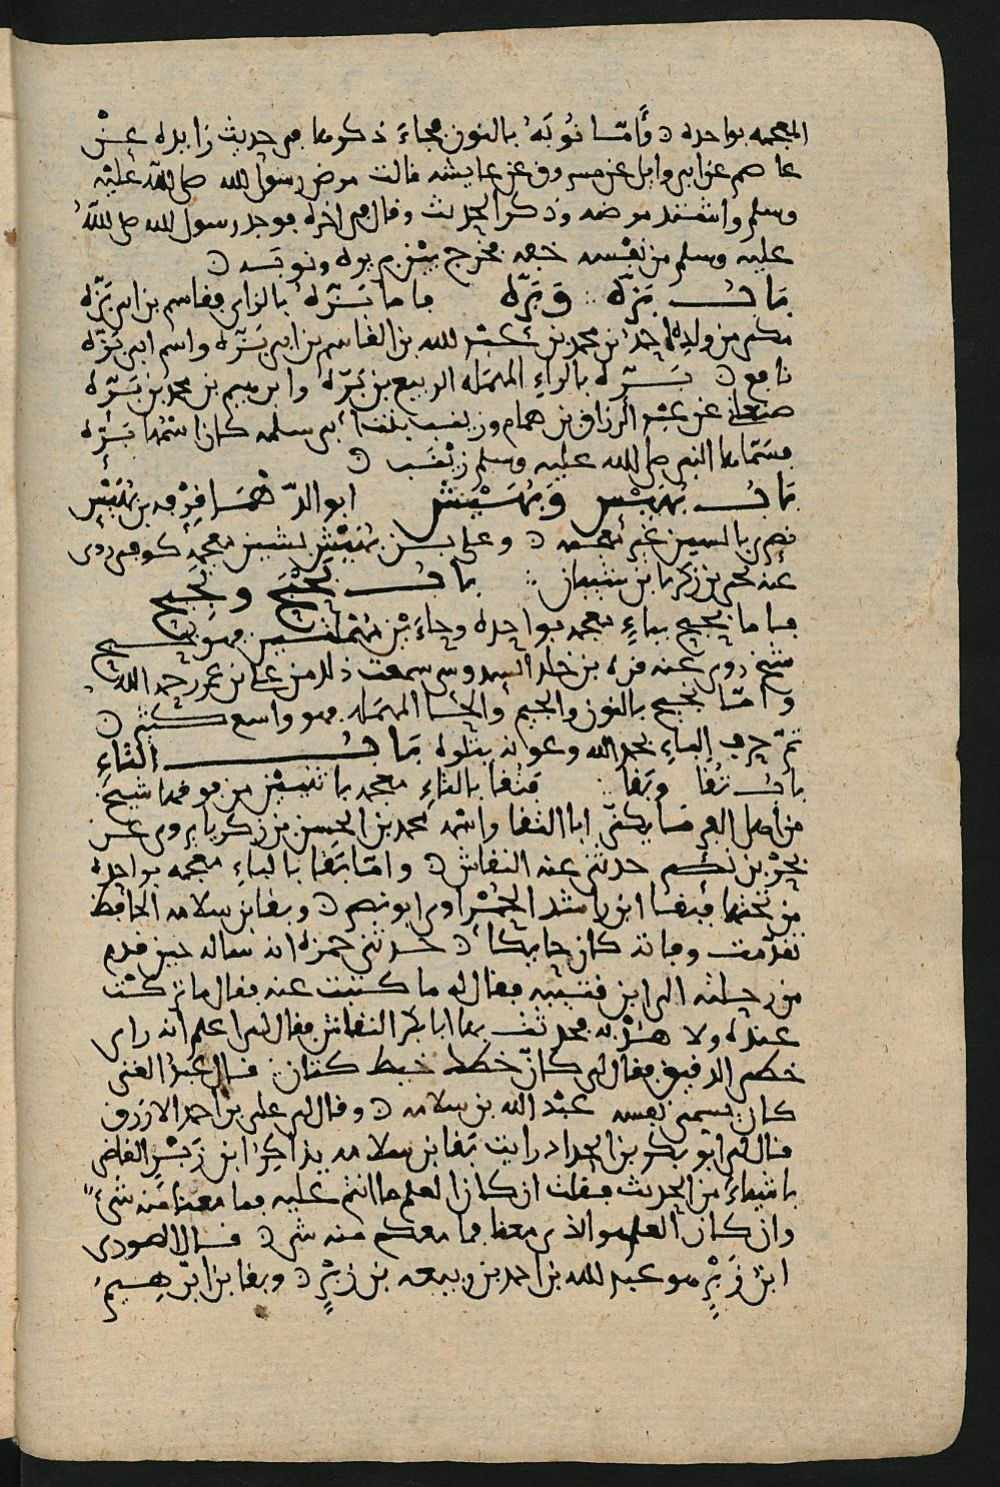 المعجمه بواحده ن وَأمّا نُوبَهُ بالنون فجاءَ ذكرها في حديث زايده عن
عاصم عن ابي وايل عن مسروق عن عايشه قالت مرض رسول الله صلى الله عليه
وسلم واشتد مرضه وذكر الحديث وقال في اخره فوجد رسول الله صلى اللهُ
عليه وسلم من نفسه خفه فخرج بين بريره ونوبَه ن
بَابُ بَزّه وَ بَرّه فاما بَزّهُ بالزاي فقاسم بن ابي بَزّه
مكي من ولده احمدُ بن محمد بن عبد الله بن القاسم بن ابي بَزّه واسم ابي بَزّه
نافع ن بَرّه بالراءِ المهمله الربيع بن بَرّه وابرهيم بن محمد بن بَرّه
صنعاني عن عبد الرزاق بن همام وزينب بنت أبي سلمه كان اسمُها بَرّه
فسمّاها النبي صلى الله عليه وسلم زينَب ن
بَابُ بُهَيْس وَبُهَيْش ابو الدّهْمَا قِرْفه بن بُهَيْس
بصري بالسين غير معجمه ن وعلي بن بُهَيْش بشين معجمه كوفي روى
عنه يحيى بن زكريا بن شيبان بابُ بَحْبَح ونجيح
فاما بحبح بباءٍ معجمه بواحده وحاءَيْن مُهْملتين فهو
شيخ روى عنه قره بن خلد السدوسي سمعت ذلك من علي بن عمر رحمه الله
وامّا نجيح بالنون والجيم والحا المهمَله فهو واسع كثير ن
تمّ حرف الباءِ بحمد الله وعونه يتلوه بَابُ التاءِ
بابُ تُقا وبَقا فتُقا بالتاءِ معجمه باثنتين من فوقها شيخ
من اهل العرفا يكنّى ابا التقا واسمه محمد بن الحسن بن زكريا يروى عن
بحر بن نصر حدثني عنه النقاش ن وامّا بَقا بالباءِ معجمه بواحده
من تحتها فبقا ابن راشد الحمْراوي ابو نصر ن وبقا بن سلامه الحافظ
تقدّمت وفاته كان حايكًا ن حدثني حمزه انه ساله حين قدم
من رحلته الى ابن قتيبه فقال له ما كتبت عنه فقال ما تركت
عنده ولا هدبه فحدثت بها ابا بكر النقاش فقال لي اعلم انه راى
خطي الدقيق فقال لي كانّ خطك خيط كتان قال عبد الغني
كان يسمي نفسه عبْد الله بن سلامه ن وقال لي علي بن احمد الازرق
قال لي ابو بكر بن الحداد رايت بَقا بن سلامه يذاكر ابن زَبْر القاضي
باشياءَ من الحديث فقلت ان كان العلم ما انتم عليه فما معنا منه شيءٌ
وان كان العلم هو الذي معنا فما معكم منه شي ن قال
ابن زَبْرٍ هو عبد الله بن احمد بن ربيعه بن زبرٍ ن وبقا بن ابرهيم